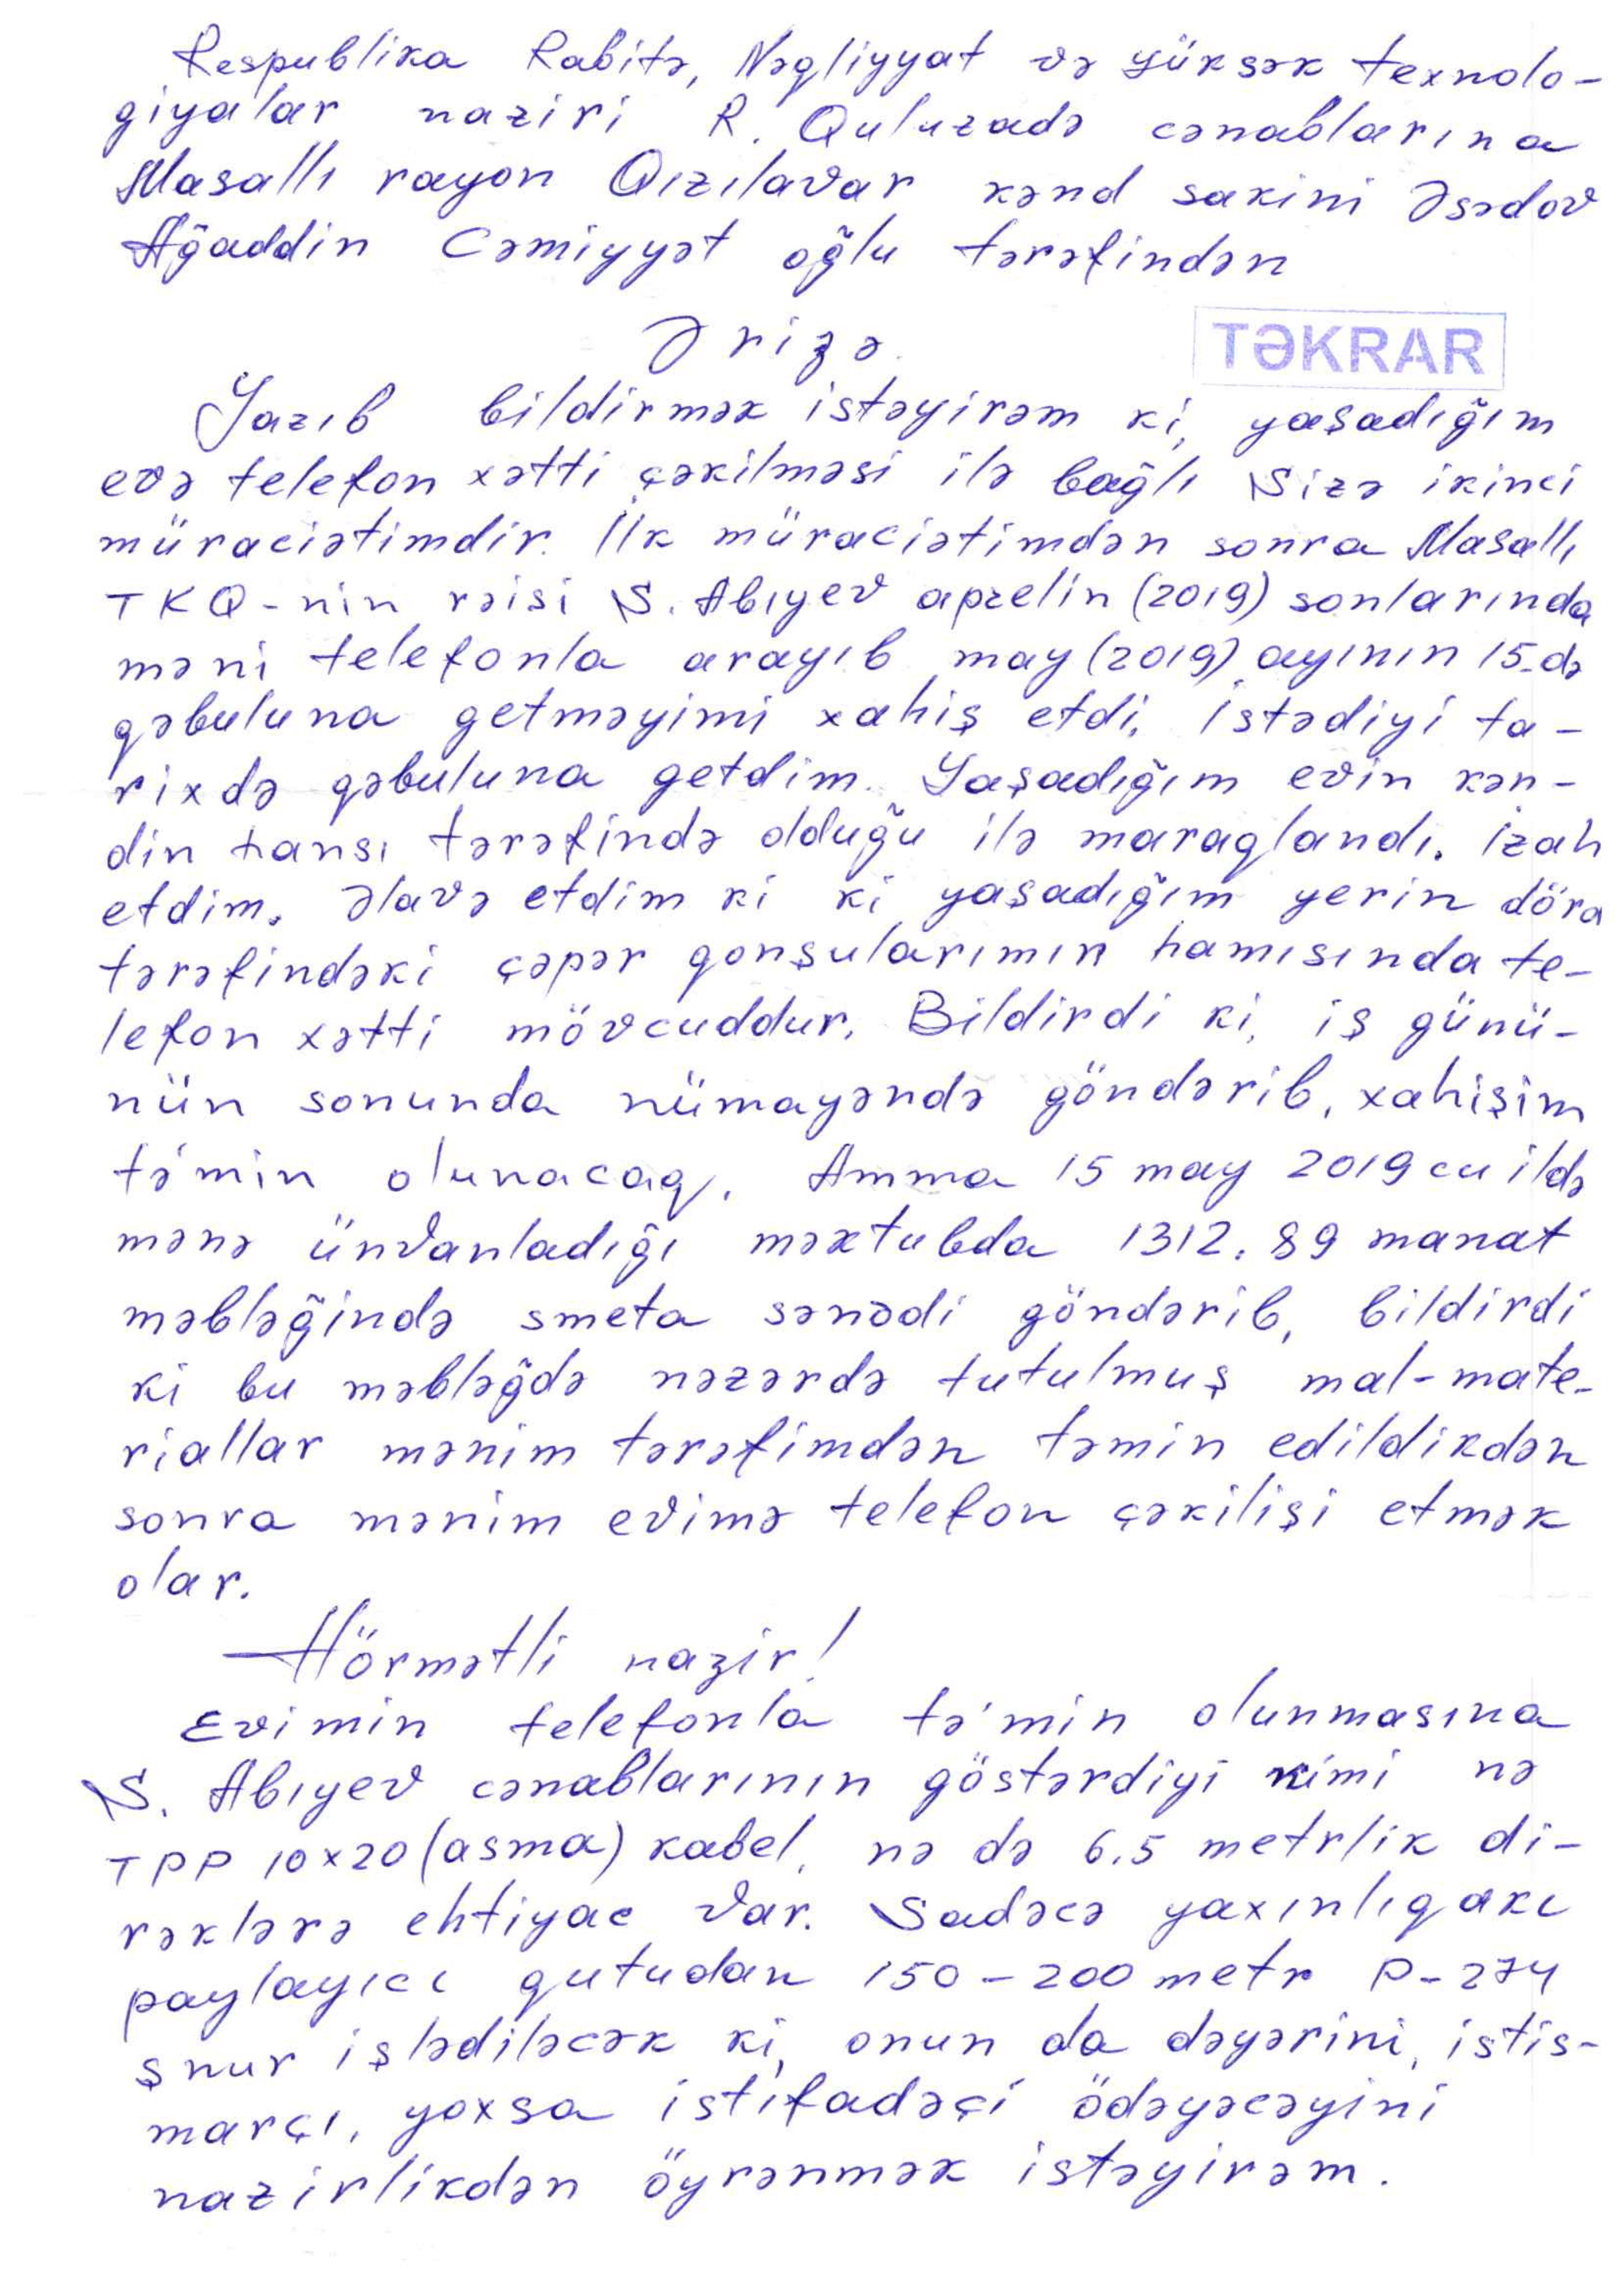 Respublika Rabitə, Nəqliyyat və Yüksək texnolo-
giyalar naziri R. Quluzadə cənablarına
Masallı rayon Qızılavar kənd sakini Əsədov
Ağaddin Cəmiyyət oğlu tərəfindən
Ərizə.
TƏKRAR
Yazıb bildirmək istəyirəm ki, yaşadığım
evə telefon xətti çəkilməsi ilə bağlı Sizə ikinci
müraciətimdir. İlk müraciətimdən sonra Masallı
TKQ-nin rəisi S. Abıyev aprelin (2019) sonlarında
məni telefonla arayıb may (2019) ayının 15-də
qəbuluna getməyimi xahiş etdi. İstədiyi ta-
rixdə qəbuluna getdim. Yaşadığım evin kən-
din hansı tərəfində olduğu ilə maraqlandı. İzah
etdim. Əlavə etdim ki ki yaşadığım yerin döra
tərəfindəki çəpər qonşularımın hamısında te-
lefon xətti mövcuddur. Bildirdi ki, iş günü-
nün sonunda nümayəndə göndərib, xahişim
tə'min olunacaq. Amma 15 may 2019 cu ildə
mənə ünvanladığı məktubda 1312.89 manat
məbləğində smeta sənədi göndərib, bildirdi
ki bu məbləğdə nəzərdə tutulmuş mal-mate-
riallar mənim tərəfimdən təmin edildikdən
sonra mənim evimə telefon çəkilişi etmək
olar.
Hörmətli nazir!
Evimin telefonla tə'min olunmasına
S. Abıyev cənablarının göstərdiyi kimi nə
TPP 10x20 (asma) kabel, nə də 6,5 metrlik di-
rəklərə ehtiyac var. Sadəcə yaxınlıqakı
paylayıcı qutudan 150-200 metr P-274
şnur işlədiləcək ki, onun da dəyərini, istis-
marçı, yoxsa istifadəçi ödəyəcəyini
nazirlikdən öyrənmək istəyirəm.